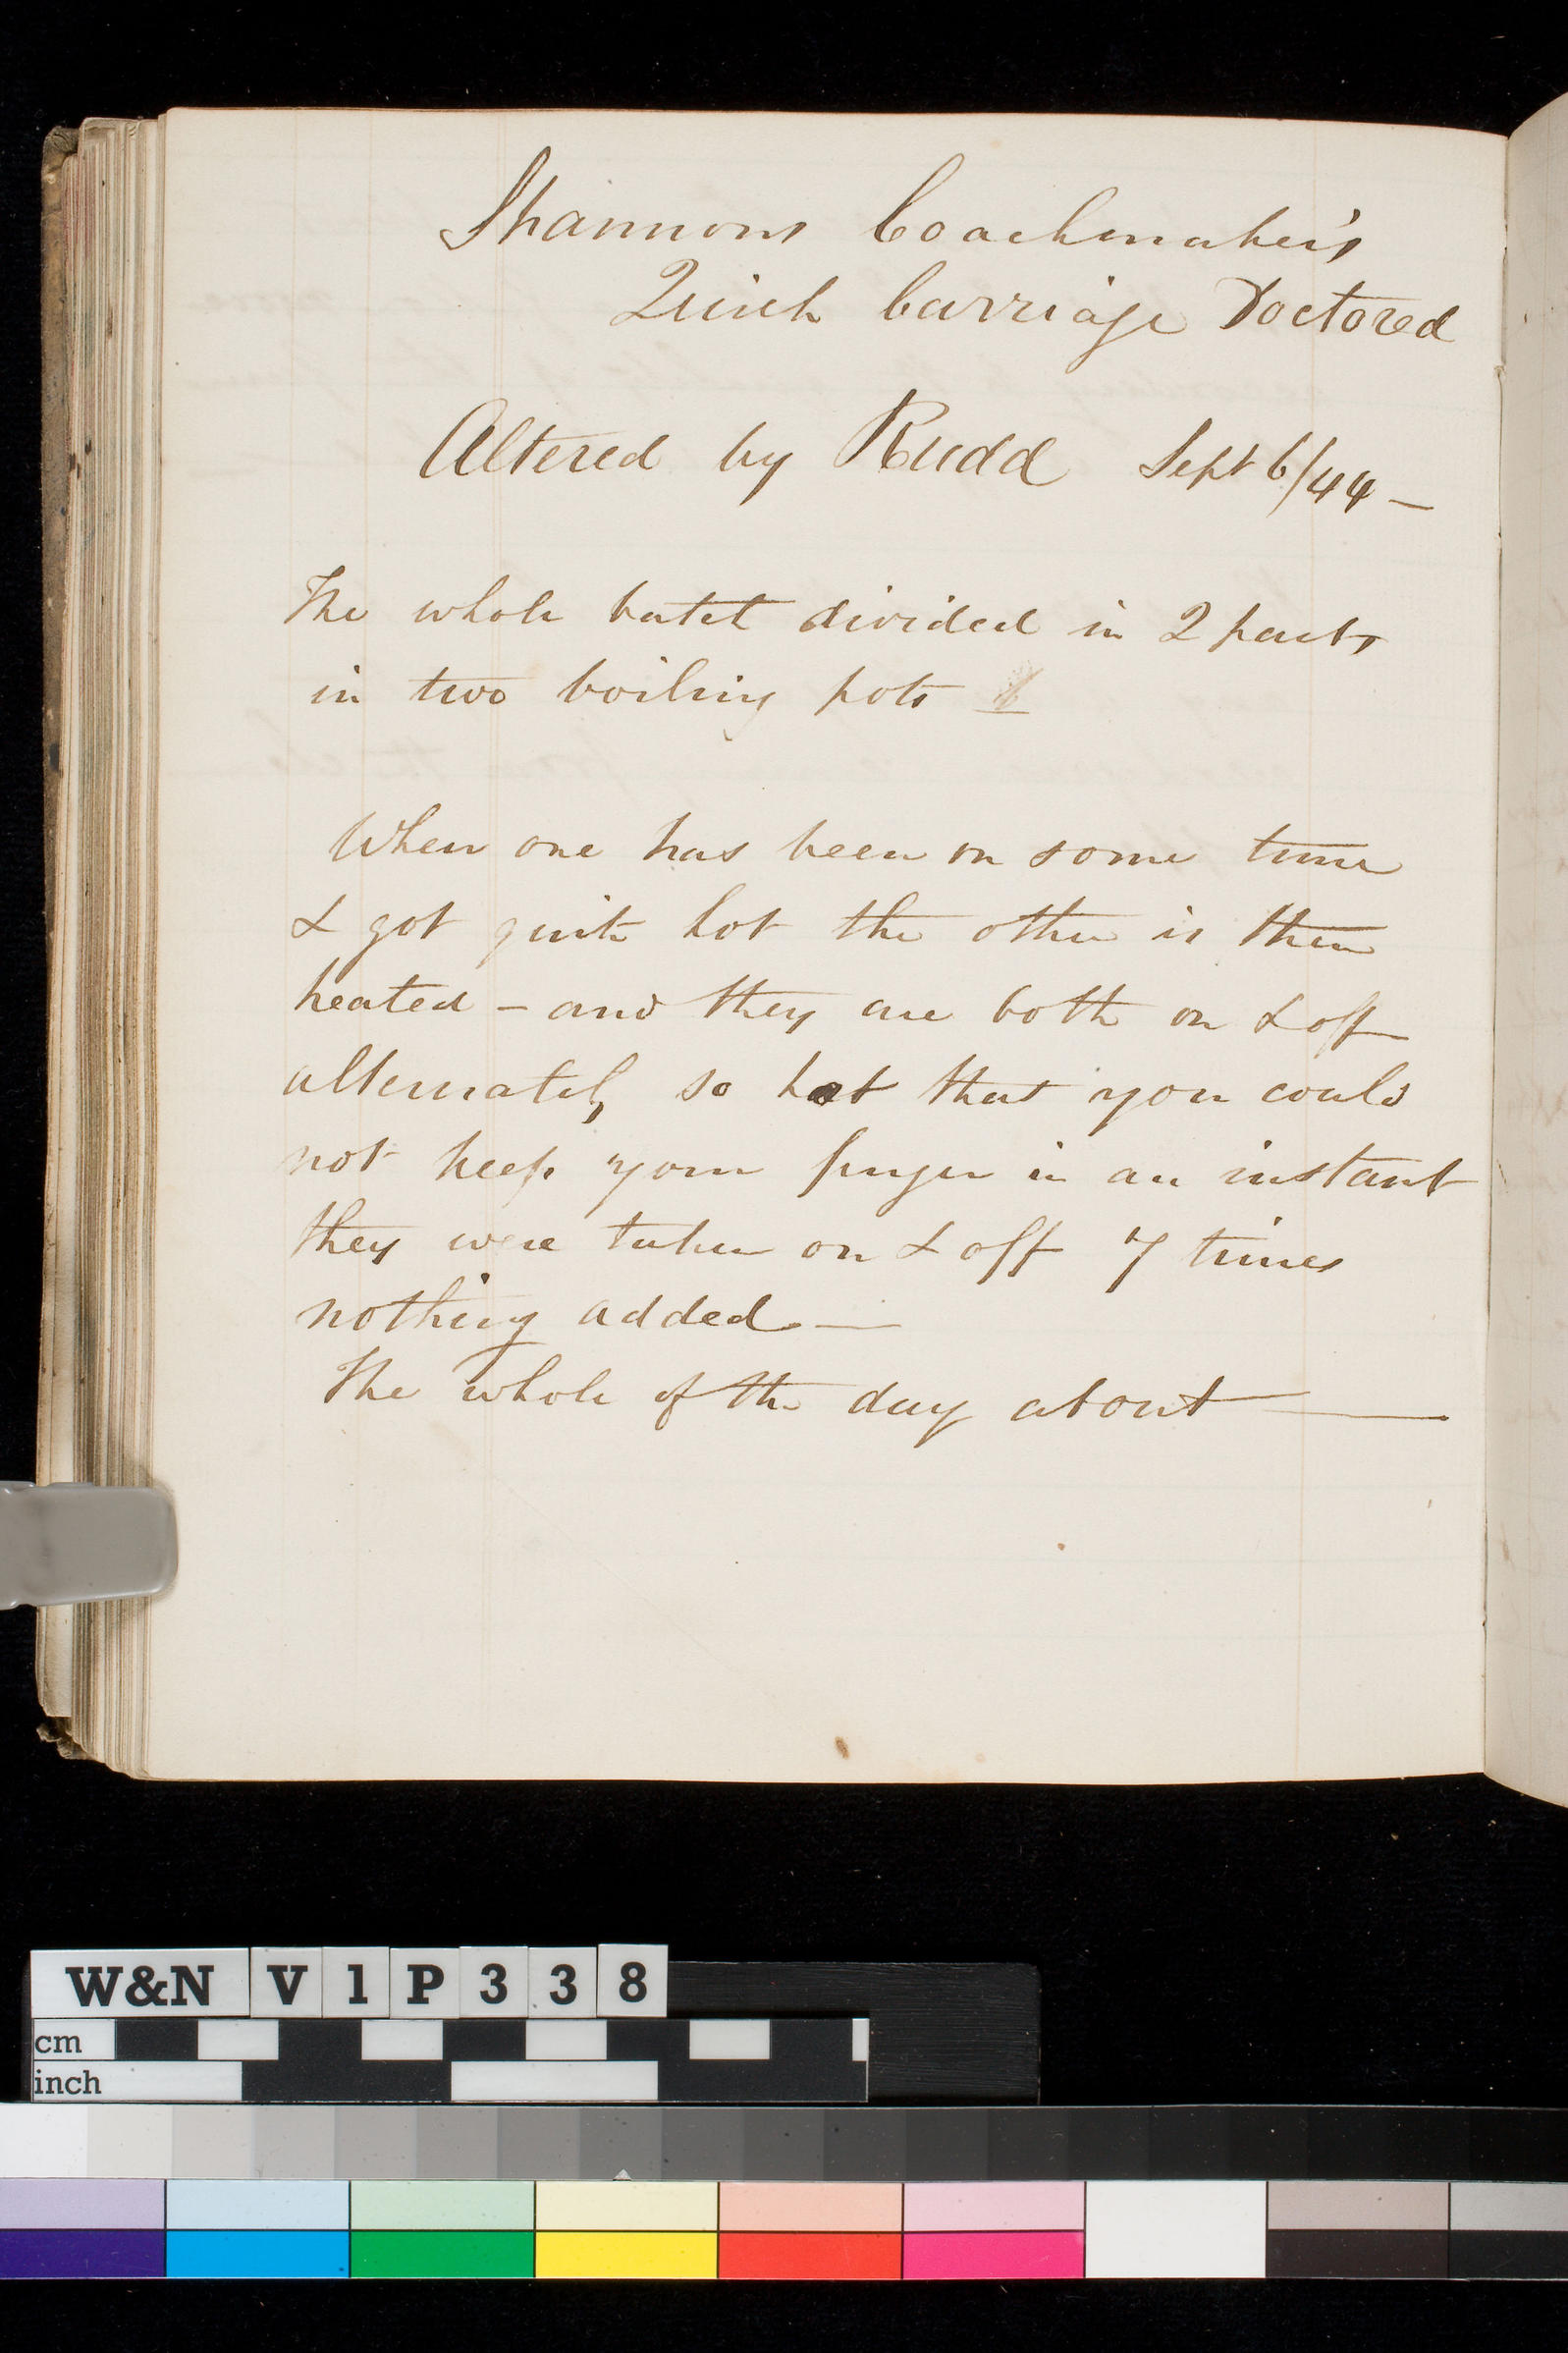 Shannons Coachmaker's
Quick Carriage Doctored
Altered by Rudd Sept 6/44 —
The whole batch divided in 2 parts
in two boiling pots
When one has been on some time
& got quite hot the other is then
heated - and they are both on & off
alternately so hot that you could
not keep your finger in an instant
they were taken on & off 7 times
nothing added —
The whole of the day about —
W&N V1P338
cm
inch